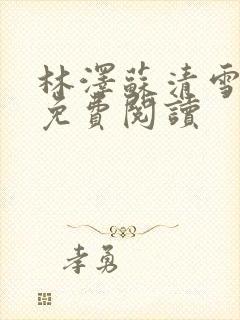 林澤蘇清雪
免費閱讀
李勇